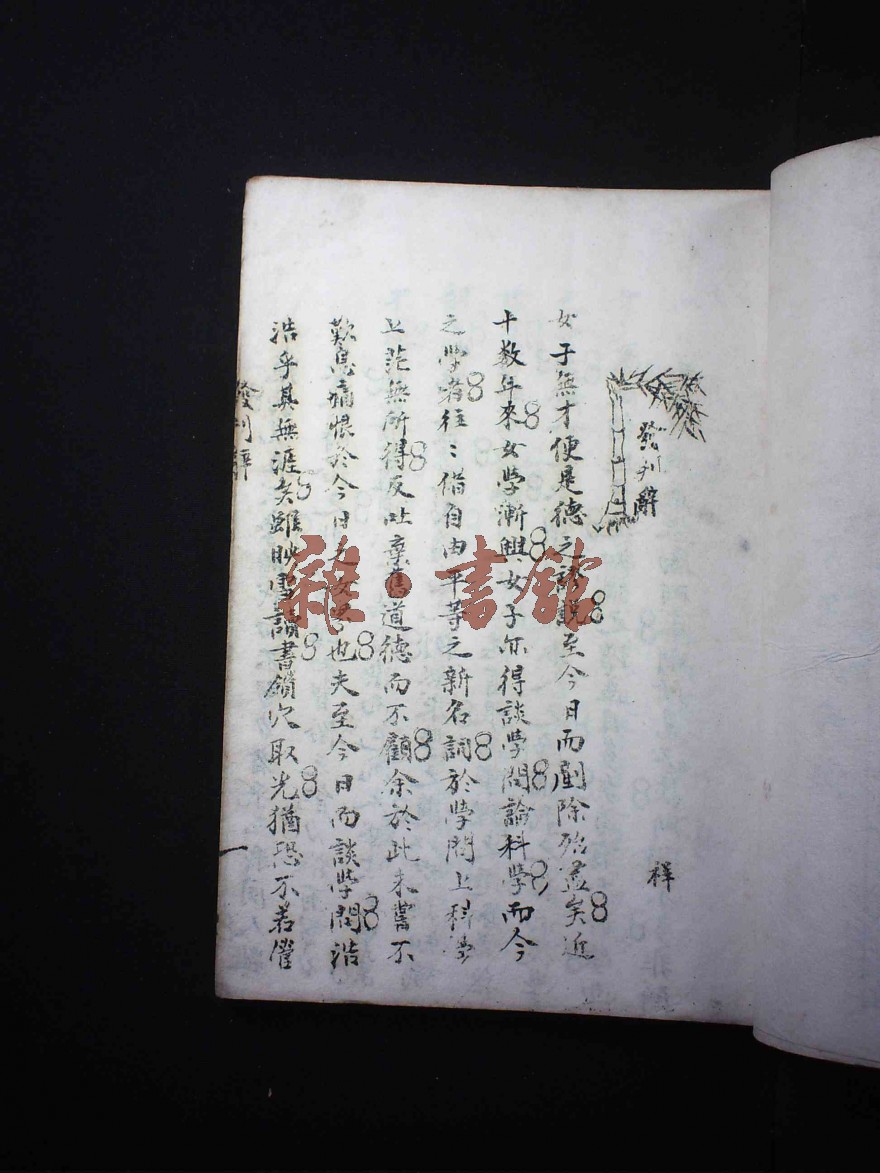 發刊辭
祥
女子無才便是德之謬說至今日而剷除殆盡矣近
十數年來女學漸興女子亦得談學問論科學而今
之學者往〻借自由平等之新名詞於學問上科學
上茫無所得反吐棄舊道德而不顧余於此未嘗不
歎息痛恨於今日之女學也夫至今日而談學問浩
浩乎其無涯矣雖映雪讀書鑽穴取光猶恐不若
發刊辭
一
雜·書館